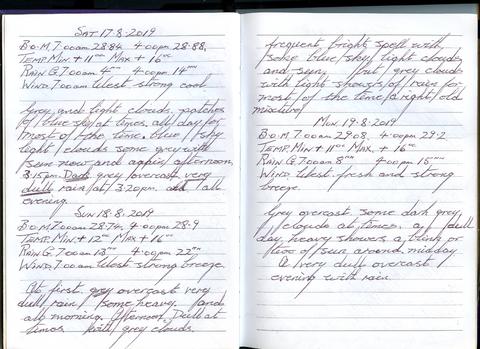 SAT 17-8-2019
B.O.M. 7.00am 28.84. 4.00pm 28.88.
TEMP. MIN + 11°C MAX + 16°C
RAIN G. 7.00am 4mm 4.00pm 14mm
WIND. 7.00am West strong cool
Grey and light clouds patches
of blue sky at times, all day for
most of the time, blue sky
light clouds some grey with
sun now and again afternoon,
3.15pm. Dark grey overcast very
dull rain at 3.20pm. and all
evening.
SUN 18-8-2019
B.O.M. 7.00am 28.74. 4.00pm 28.9
TEMP. MIN + 12°C MAX + 16°C
RAIN G. 7.00am 13mm 4.00pm 22mm
WIND. 7.00am West strong breeze.
At first, grey overcast very
dull rain, some heavy. and
all morning. Afternoon. Dull at
times with grey clouds.
frequent bright spell with
some blue sky light clouds
and sun, but grey clouds
with light showers of rain for
most of the time. bright, old
mixture
MON 19-8-2019
B.O.M. 7.00am 29.08. 4.00pm 29.2
TEMP. MIN + 11°C MAX. + 16°C
RAIN G. 7.00am 8mm 4.00pm 15mm
WIND. West. fresh and strong
breeze.
Grey overcast, some dark grey
clouds at times. a dull
day, heavy showers a blink or
two of sun around midday
A very dull overcast
evening with rain.